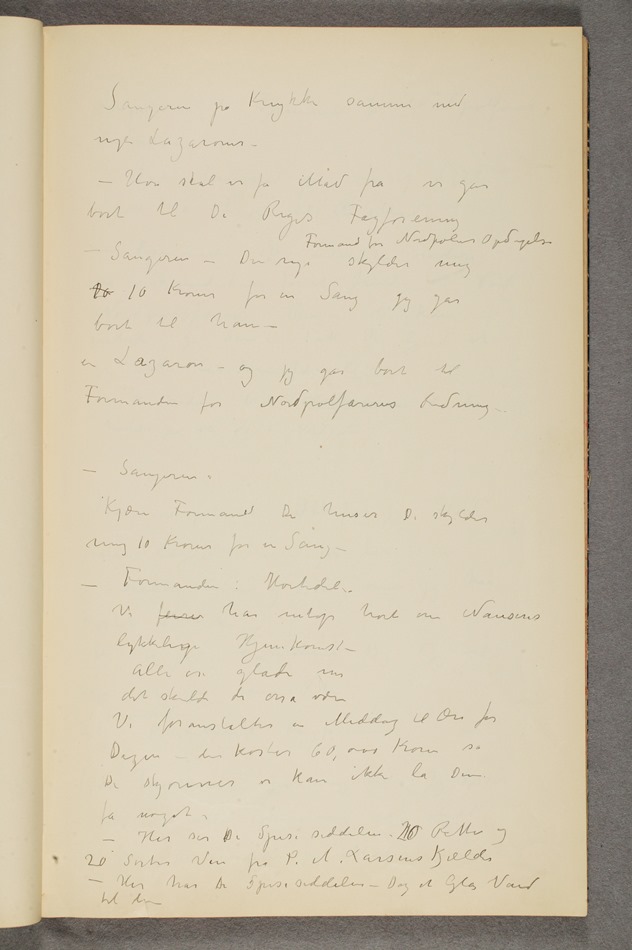 Sangeren på Krykke sammen med
nye Lazaroner –
– Hvor skal vi få Mad fra vi går
bort til De Riges Fagforening
Formand for Nordpolens Opdagelse
– Sangeren – Den nye skylder mig
10 Kroner for en Sang jeg går
bort til ham –
en Lazaron – og jeg går bort til
Formanden for Nordpolfarernes
– Sangeren.
Kjære Formand De husker De skylder
mig 10 Kroner for en Sang –
– Formanden:
Vi har netop hørt om Nansens
lykkelige Hjemkomst –
alle er glade nu
det skulde De også være
Vi foranstalter en Middag til Ære for
Dagen – den koster 60,000 Kroner så
De skjønner vi kan ikke la Dem
få noget.
– Her ser De Spiseseddelen. 20 Retter og
20 Sorter Vin fra P. A. Larsens Kjælder
– Her har De Spiseseddelen – Dog et Glas Vand
til den